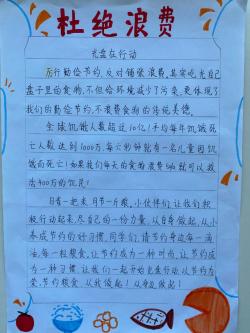 杜绝浪费
光盘在行动
厉行勤俭节约,反对铺张浪费,其实吃光自
己盘子里的食物,不但给环境减少了污染,更体现了
我们的勤俭节约,不浪费食物的传统美德。
全球饥饿人数超过10亿!平均每年饿死
亡人数达到1000万,每六秒钟就有一名儿童因饥
饿而死亡!如果我们每天的食物浪费5%就可以救
活400万的饥民!
日省一把米,月节一斤粮,小伙伴们,让我们积
极行动起来,尽自己的一份力量,从自身做起,从小
养成节约的好习惯。同学们,请节约身边每一滴
油,每一粒粮食,让节约成为一种时尚,让节约成
为一种习惯,让我们一起开始光盘行动,以节约为
荣,节约粮食,从我做起!从身边做起!